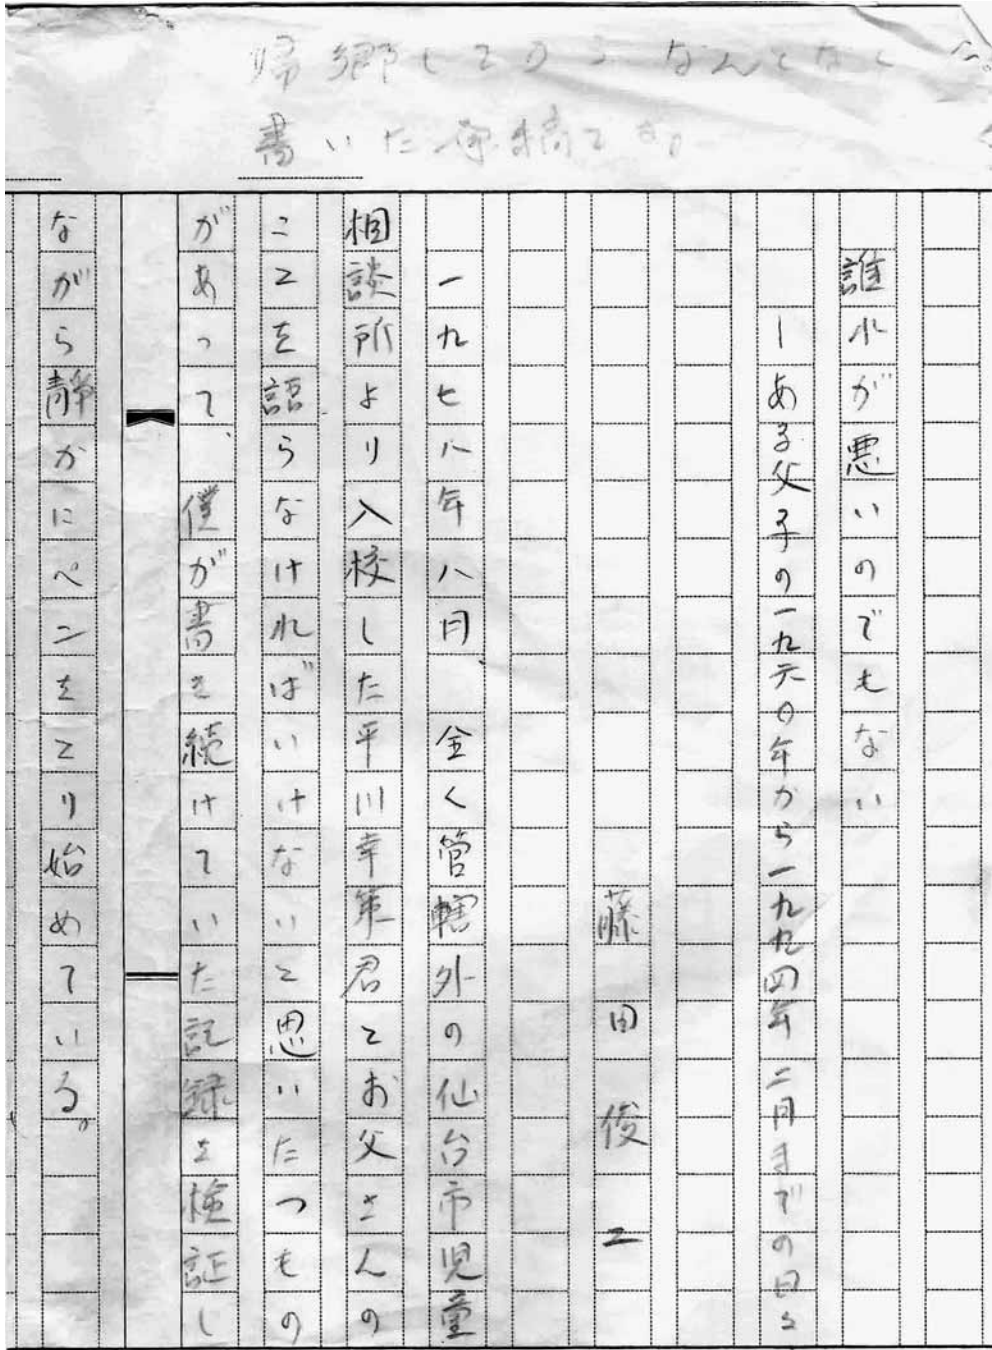 帰郷してのち なんとなく
書いた原稿です。
誰れが悪いのでもない
ーある父子の一九六〇年から一九九四年二月までの日々
藤田俊二
一九七八年八月、全く管轄外の仙台市児童
相談所より入校した平川幸雄君とお父さんの
ことを語らなければいけないと思いたつもの
があって、僕が書き続けていた記録を検証し
ながら静かにペンをとり始めている。